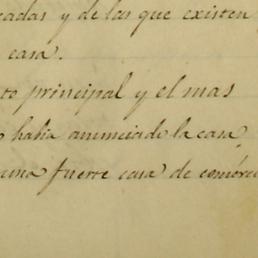 cadas y de las que existen
casa.
to principal y el mas
habia anunciado la casa
una fuerte casa de comerc